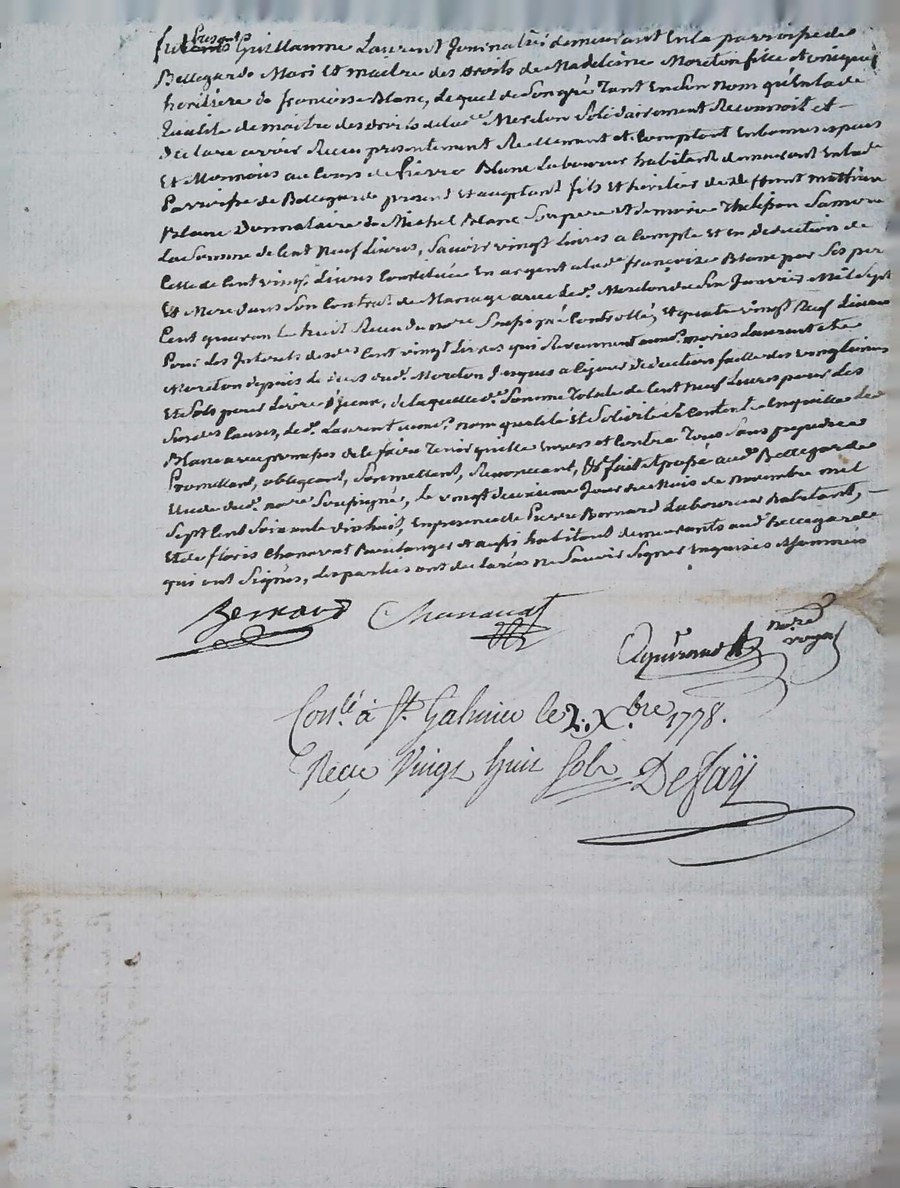 fut présent Guillaume Laurent Journalier demeurant En la parroisse de
Bellegarde Mari et maitre des droits de Madeleine Moreton fille et unique
heritiere de françoise Blanc, Lequel de Son gré tant En Son Nom qu'En lad.e
qualité de maitre des droits de lad.e Moreton Solidairement Reconnoit et
declare avoir Reçu presentement Reellement et Comptant En bonnes especes
Et Monnois au Cours de Pierre Blanc Laboureur habitant demeurant En lad.e
Parroisse de Bellegarde present et acceptant fils et héritier de deffunt mathieu
Blanc Donnataire de Michel Blanc Son pere et de marie Thelisson Sa mere
La Somme de Cent Neuf Livres, Savoir vingt Livres a Compte et en deduction de
Celle de Cent vingt Livres Constituée En argent a lad.e françoise Blanc par Ses pere
Et Mere dans Son Contrat de Mariage avec led. Moreton du Janvier Mil Sept
Cent quarante huit Reçu du no.re Soussigné Controllé, et quatre vingt Neuf Livres
Pour Les Interets desd.es Cent vingt Livres qui Reviennent auxd. mariés Laurent et
Moreton depuis le deces dud. Moreton Jusques a ce jour deduction faitte des vingtiemes
Et Sols pour Livre d'iceux, de laquelle d.e Somme Totale de Cent Neuf Livres pour Les
Susdes Causes, Led. Laurent auxd. nom qualité et Solidité Se Contente En quitte led.
Blanc avec promesse de le faire Tenir quitte Envers et Contre Tous Sans prejudice
Promettant, obligeant, Soumettant, Renonçant, &c fait et passé aud. Bellegarde
Etude dud. no.re Soussigné, Le vingt deuxieme Jour du Mois de Novembre mil
Sept Cent Soixante dix huit, En presence de Pierre Bernard Laboureur habitant,
Et de floris Chanavat Boulanger et aussi habitant demeurants aud. Bellegarde
qui ont Signés, Les parties ont declarées ne Savoir Signer Enquises et Sommées
Bernard Chanavat
no.re royal
Con.lé à S.t Galmier le 2. X.bre 1778.
Reçu Vingt huit Sols Deffaÿ